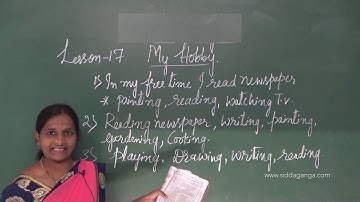 Lesson-17 My Hobby.
1) In my free time I read newspaper
* painting, reading, watching T.v
2) Reading newspaper, writing, painting,
gardening, Cooking.
3) playing, Drawing, writing, reading.
www.siddaganga.com